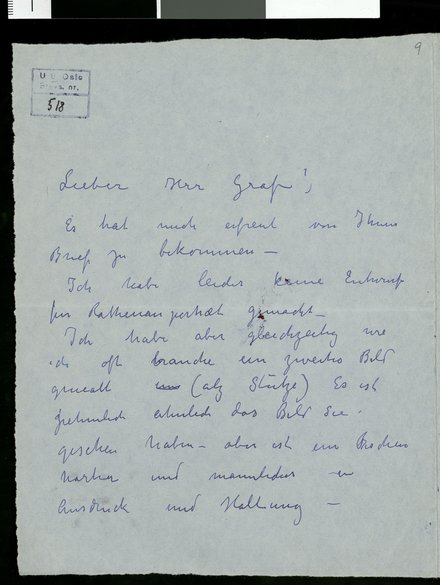 9
U B Oslo
Brevs. nr.
518
Lieber Herr Graf!,
Es hat mich erfreut von Ihnen
Brief zu bekommen –
Ich habe leider keine Entwurf
für Rathenau portræt gemacht –
Ich habe aber gleichzeitig wie
ich oft brauche ein zweites Bild
gemalt (alz Stütze) Es ist
das Bild Sie
gesehen haben – aber ist ein Bischen
starker und mannlicher in
Ausdruck und Haltung –